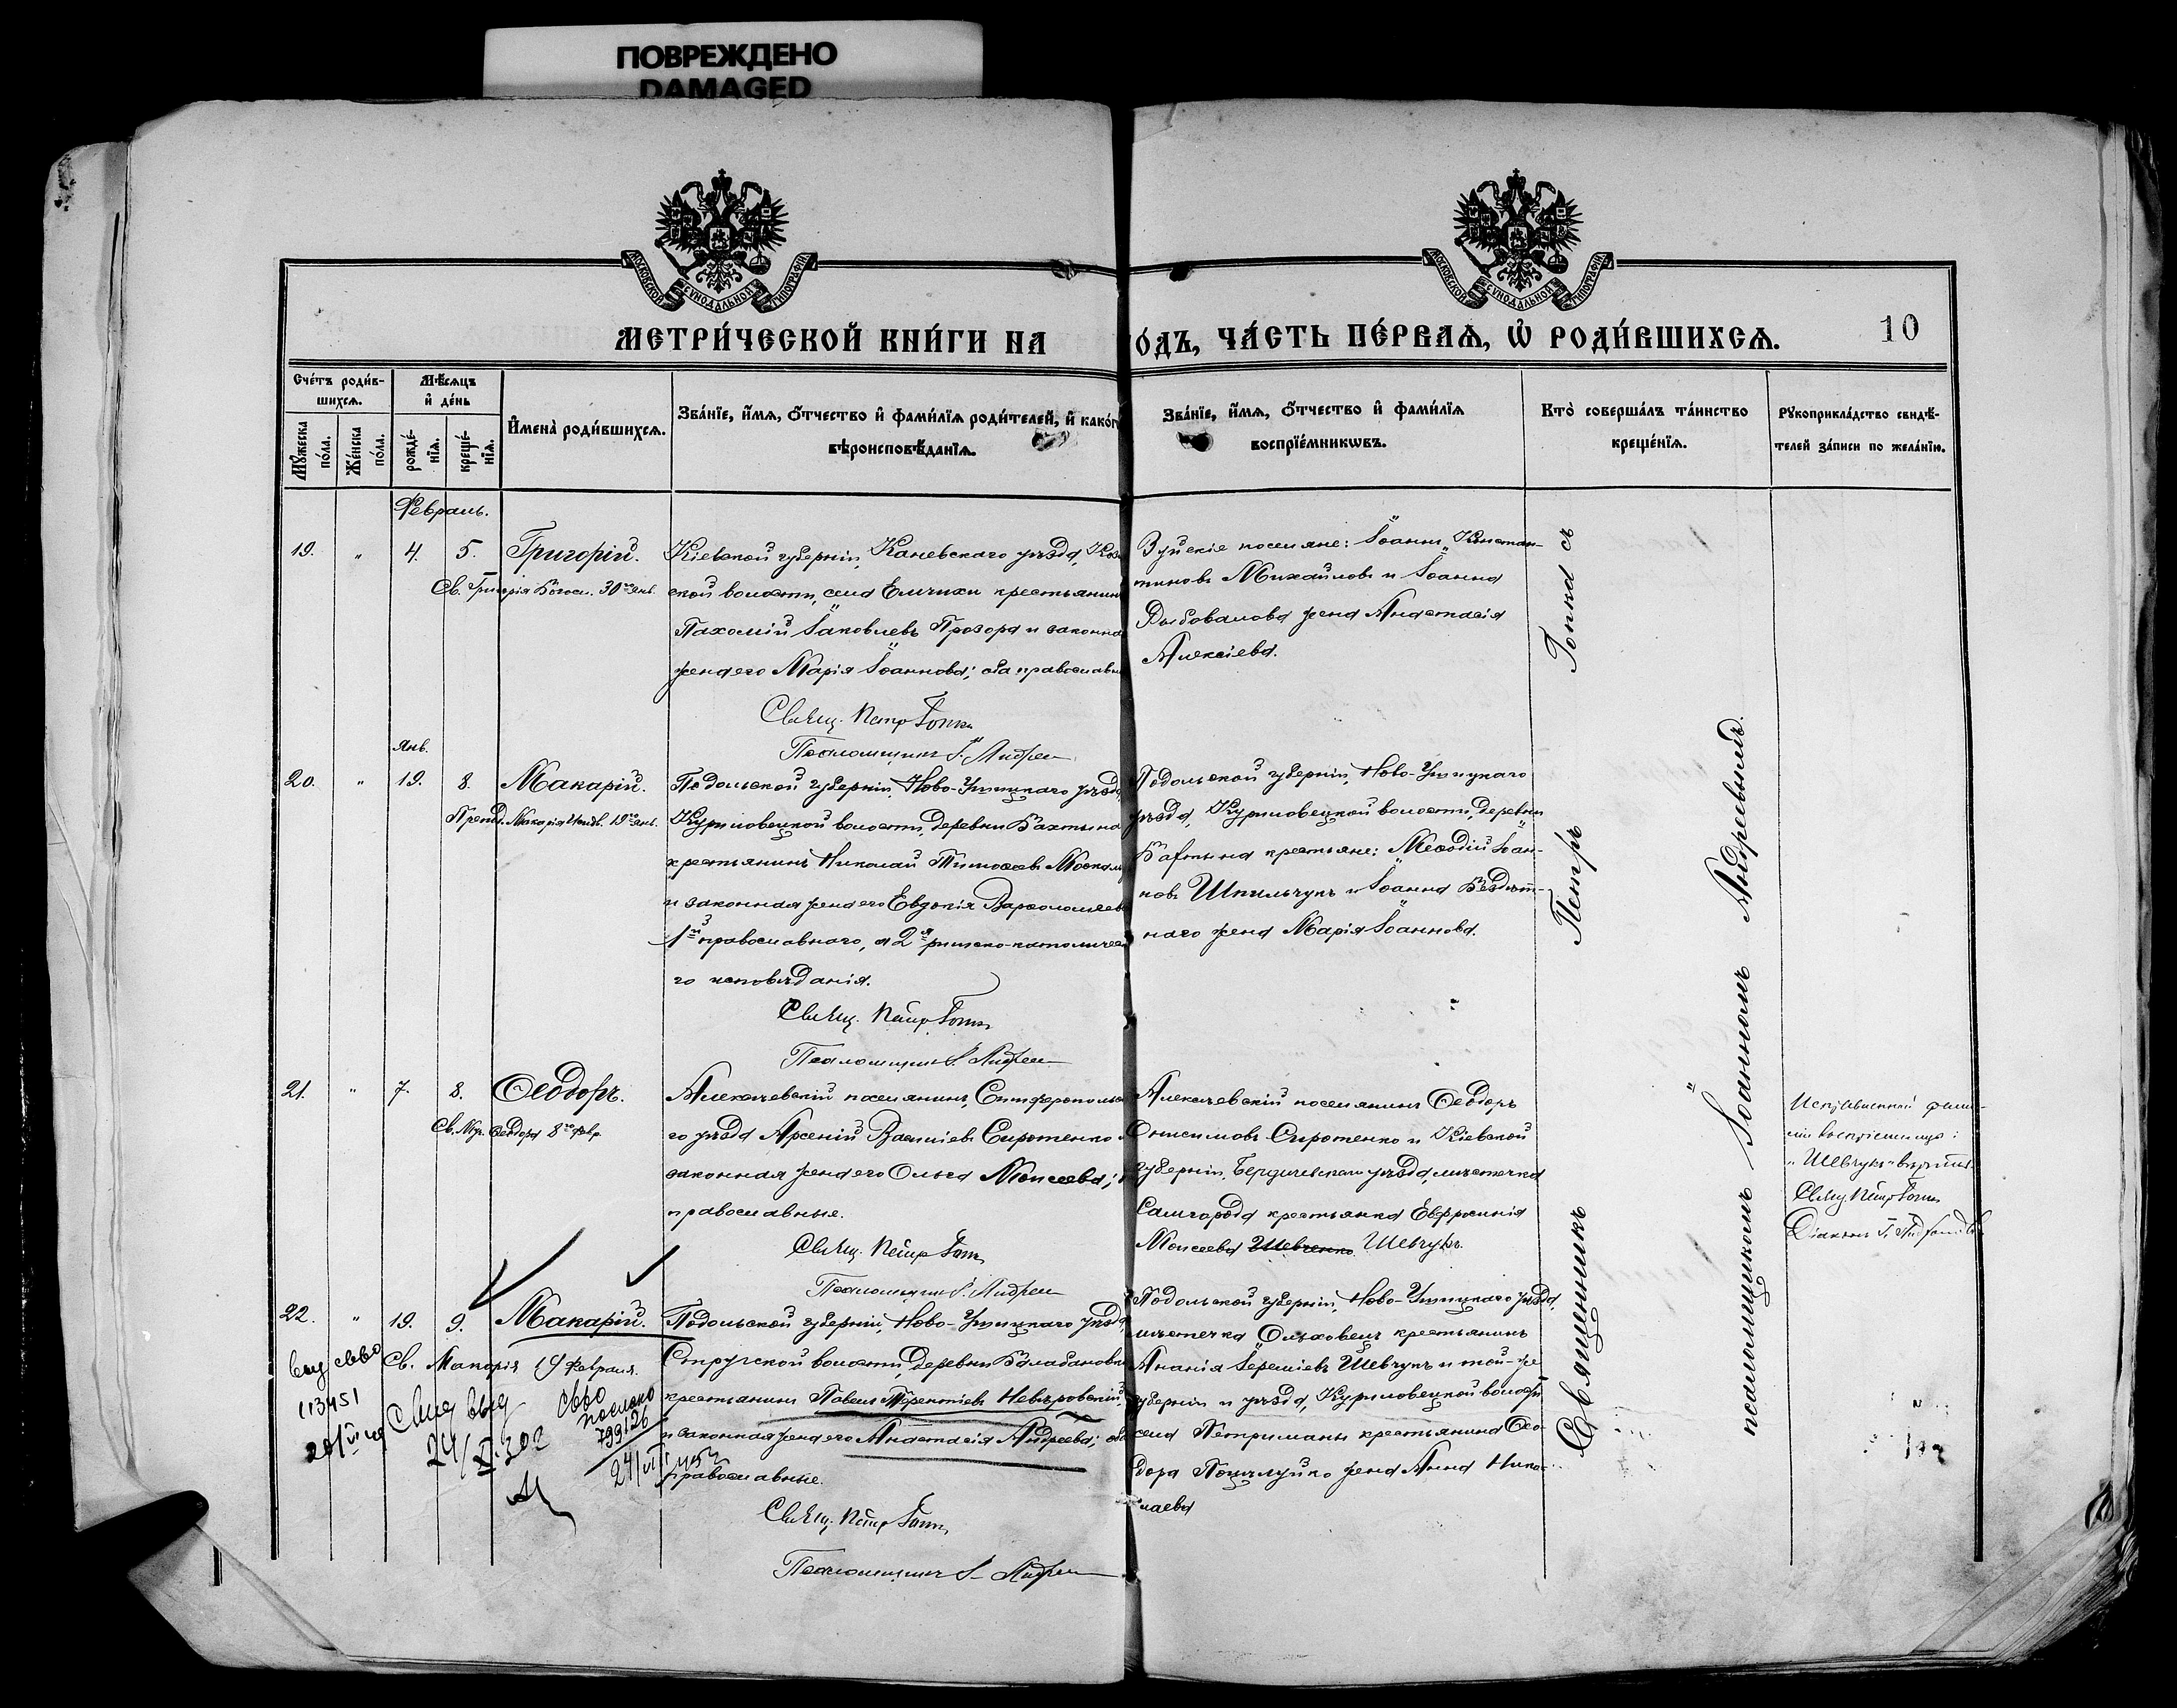 ПОВРЕЖДЕНО
DAMAGED
МОСКОВСКОЙ СѴНОДАЛЬНОЙ ТИПОГРАФІИ
МОСКОВСКОЙ СѴНОДАЛЬНОЙ ТИПОГРАФІИ
МЕТРИ́ЧЕСКОЙ КНИ́ГИ НА
О́ДЪ, ЧА́СТЬ ПЕ́РВАѦ, Ѡ҆ РОДИ́ВШИХСѦ.
10
Сче́тъ роди́в-
шихсѧ.
Мꙋ́жеска по́ла.
Же́нска по́ла.
Мѣ́сѧцъ
и҆ де́нь
рожде́-
нїѧ.
креще́-
нїѧ.
И҆мена̀ роди́вшихсѧ.
Зва́нїе, и҆́мѧ, ѻ҆́тчество и҆ фами́лїѧ роди́телей, и҆ како́г
вѣроисповѣ́данїѧ.
Зва́нїе, и҆́мѧ, ѻ҆́тчество и҆ фами́лїѧ
воспрїе́мникѡвъ.
Кто̀ соверша́лъ та́инство
креще́нїѧ.
Рꙋкоприкла́дство свидѣ́-
телей за́писи по жела́нїю.
Февраль.
19. " 4. 5. Григорій.
Св. Григорія Богосл. 30го янв.
Кіевской губерніи, Каневскаго уѣзда, Коз
ской волости, села Емчихи крестьянин
Пахомій Іаковлевъ Прозора и законна
жена его Марія Іоаннова; оба православн
Свящ. Петр Гопка
Псаломщикъ І. Андрее
Зуйскіе поселяне: Іоаннъ Констан-
тиновъ Михайловъ и Іоанна
жена Анастасія
Алексіева.
Янв.
20. " 19. 8. Макарій.
Препод. Макарія 19го янв.
Подольской губерніи, Ново-Ушицкаго уѣзда,
Куриловецкой волости, деревни Бахтына
крестьянинъ Николай Тимоѳеевъ Москал
и законная жена его Евдокія Варѳоломеев
1й православнаго, а 2я римско-католичес
го исповѣданія.
Свящ. Петр Гопка
Псаломщикъ І. Андрее
Подольской губерніи, Ново-Ушицкаго
уѣзда, Куриловецкой волости, деревни
Бахтына крестьяне: Меѳодій Іоан-
новъ Шпильчукъ и Іоанна Бездѣт-
наго жена Марія Іоаннова.
21. " 7. 8. Ѳеодоръ.
Св. Муч. Ѳеодора 8го февр.
Алексѣевскій поселянинъ, Симферопольс
го уѣзда Арсеній Василіевъ Сиротенко
законная жена его Ольга Моисеева;
православные.
Свящ. Петр Гопка
Псаломщикъ І. Андрее
Алексѣевскій поселянинъ Ѳеодоръ
Онисимовъ Сиротенко и Кіевской
губерніи, Бердичевскаго уѣзда, мѣстечка
Самгородка крестьянка Евфросинія
Моисеева Шевченко Шевчукъ.
Исправленной фами-
ліи воспріемницы:
"Шевчукъ" вѣрить.
Свящ. Петр Гопка
Діаконъ І.
22. " 19. 9. Макарій.
Св. Макарія 19 февраля.
Подольской губерніи, Ново-Ушицкаго уѣзда,
Стругской волости, деревни Балабановки
крестьянинъ Павелъ Терентіевъ Невѣровскій,
и законная жена его Анастасія Андреева; оба
православные.
Свящ. Петр Гопка
Псаломщикъ І. Андрее
Подольской губерніи, Ново-Ушицкаго уѣзда,
мѣстечка Ольховецъ крестьянинъ
Ананія Іереміевъ Шевчукъ и той-же
губерніи и уѣзда, Куриловецкой волости
села Петриманы крестьянина Ѳео-
дора Поцѣлуйко жена Анна Нико-
лаева
113451
24/XI.302
799126
Священникъ Петръ Гопка съ
псаломщикомъ Іоанномъ Андреевымъ.